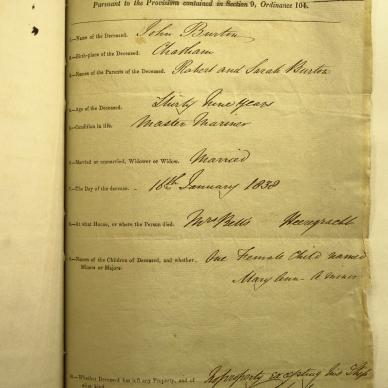 Pursuant to the Provisions contained in Section 9, Ordinance 104.
1.—Name of the Deceased. John Burton
2.—Birth-place of the Deceased. Chatham
3.—Names of the Parents of the Deceased. Robert and Sarah Burton
4.—Age of the Deceased. Thirty Nine Years
5.—Condition in life. Master Mariner
6.—Married or unmarried, Widower or Widow. Married
7.—The Day of the decease. 16th January 1838
8.—At what House, or where the Person died. Mrs Betts Heerengracht
9.—Names of the Children of Deceased, and whether Minors or Majors. One Female Child named
Mary Ann - A minor
10.—Whether Deceased has left any Property, and of what kind. No property excepting his Ship